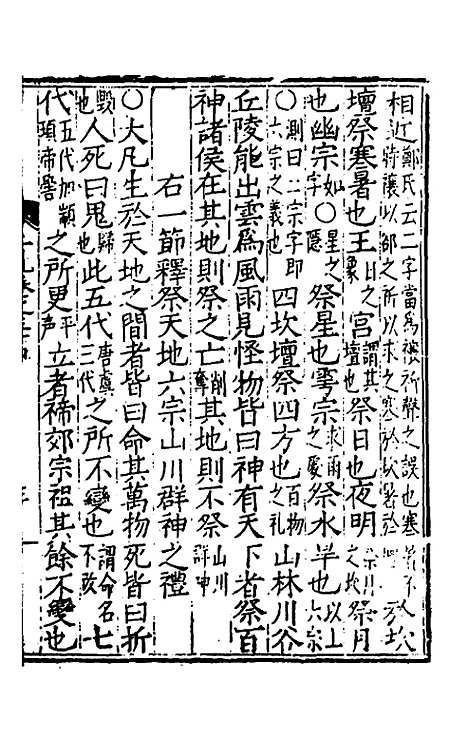 相近鄭氏云二字當爲禳祈聲之誤也寒於坎
壇祭寒暑也王日之象宮謂其壇也祭日也夜明祭月
也幽宗如字○星之隱祭星也雩宗求雨之處祭水旱也以山六宗
○測曰二宗字即六宗之義也四坎壇祭四方也百物之礼山林川谷
丘陵能出雲爲風雨見怪物皆曰神有天下者祭百
神諸侯在其地則祭之亡削奪其地則不祭山川群神
右一節釋祭天地六宗山川群神之禮
○大凡生於天地之間者皆曰命其萬物死皆曰折
毀也人死曰鬼歸也此五代唐虞三代之所不變也謂命名不改七
代五代加顓頊帝嚳之所更平声立者禘郊宗祖其餘不變也